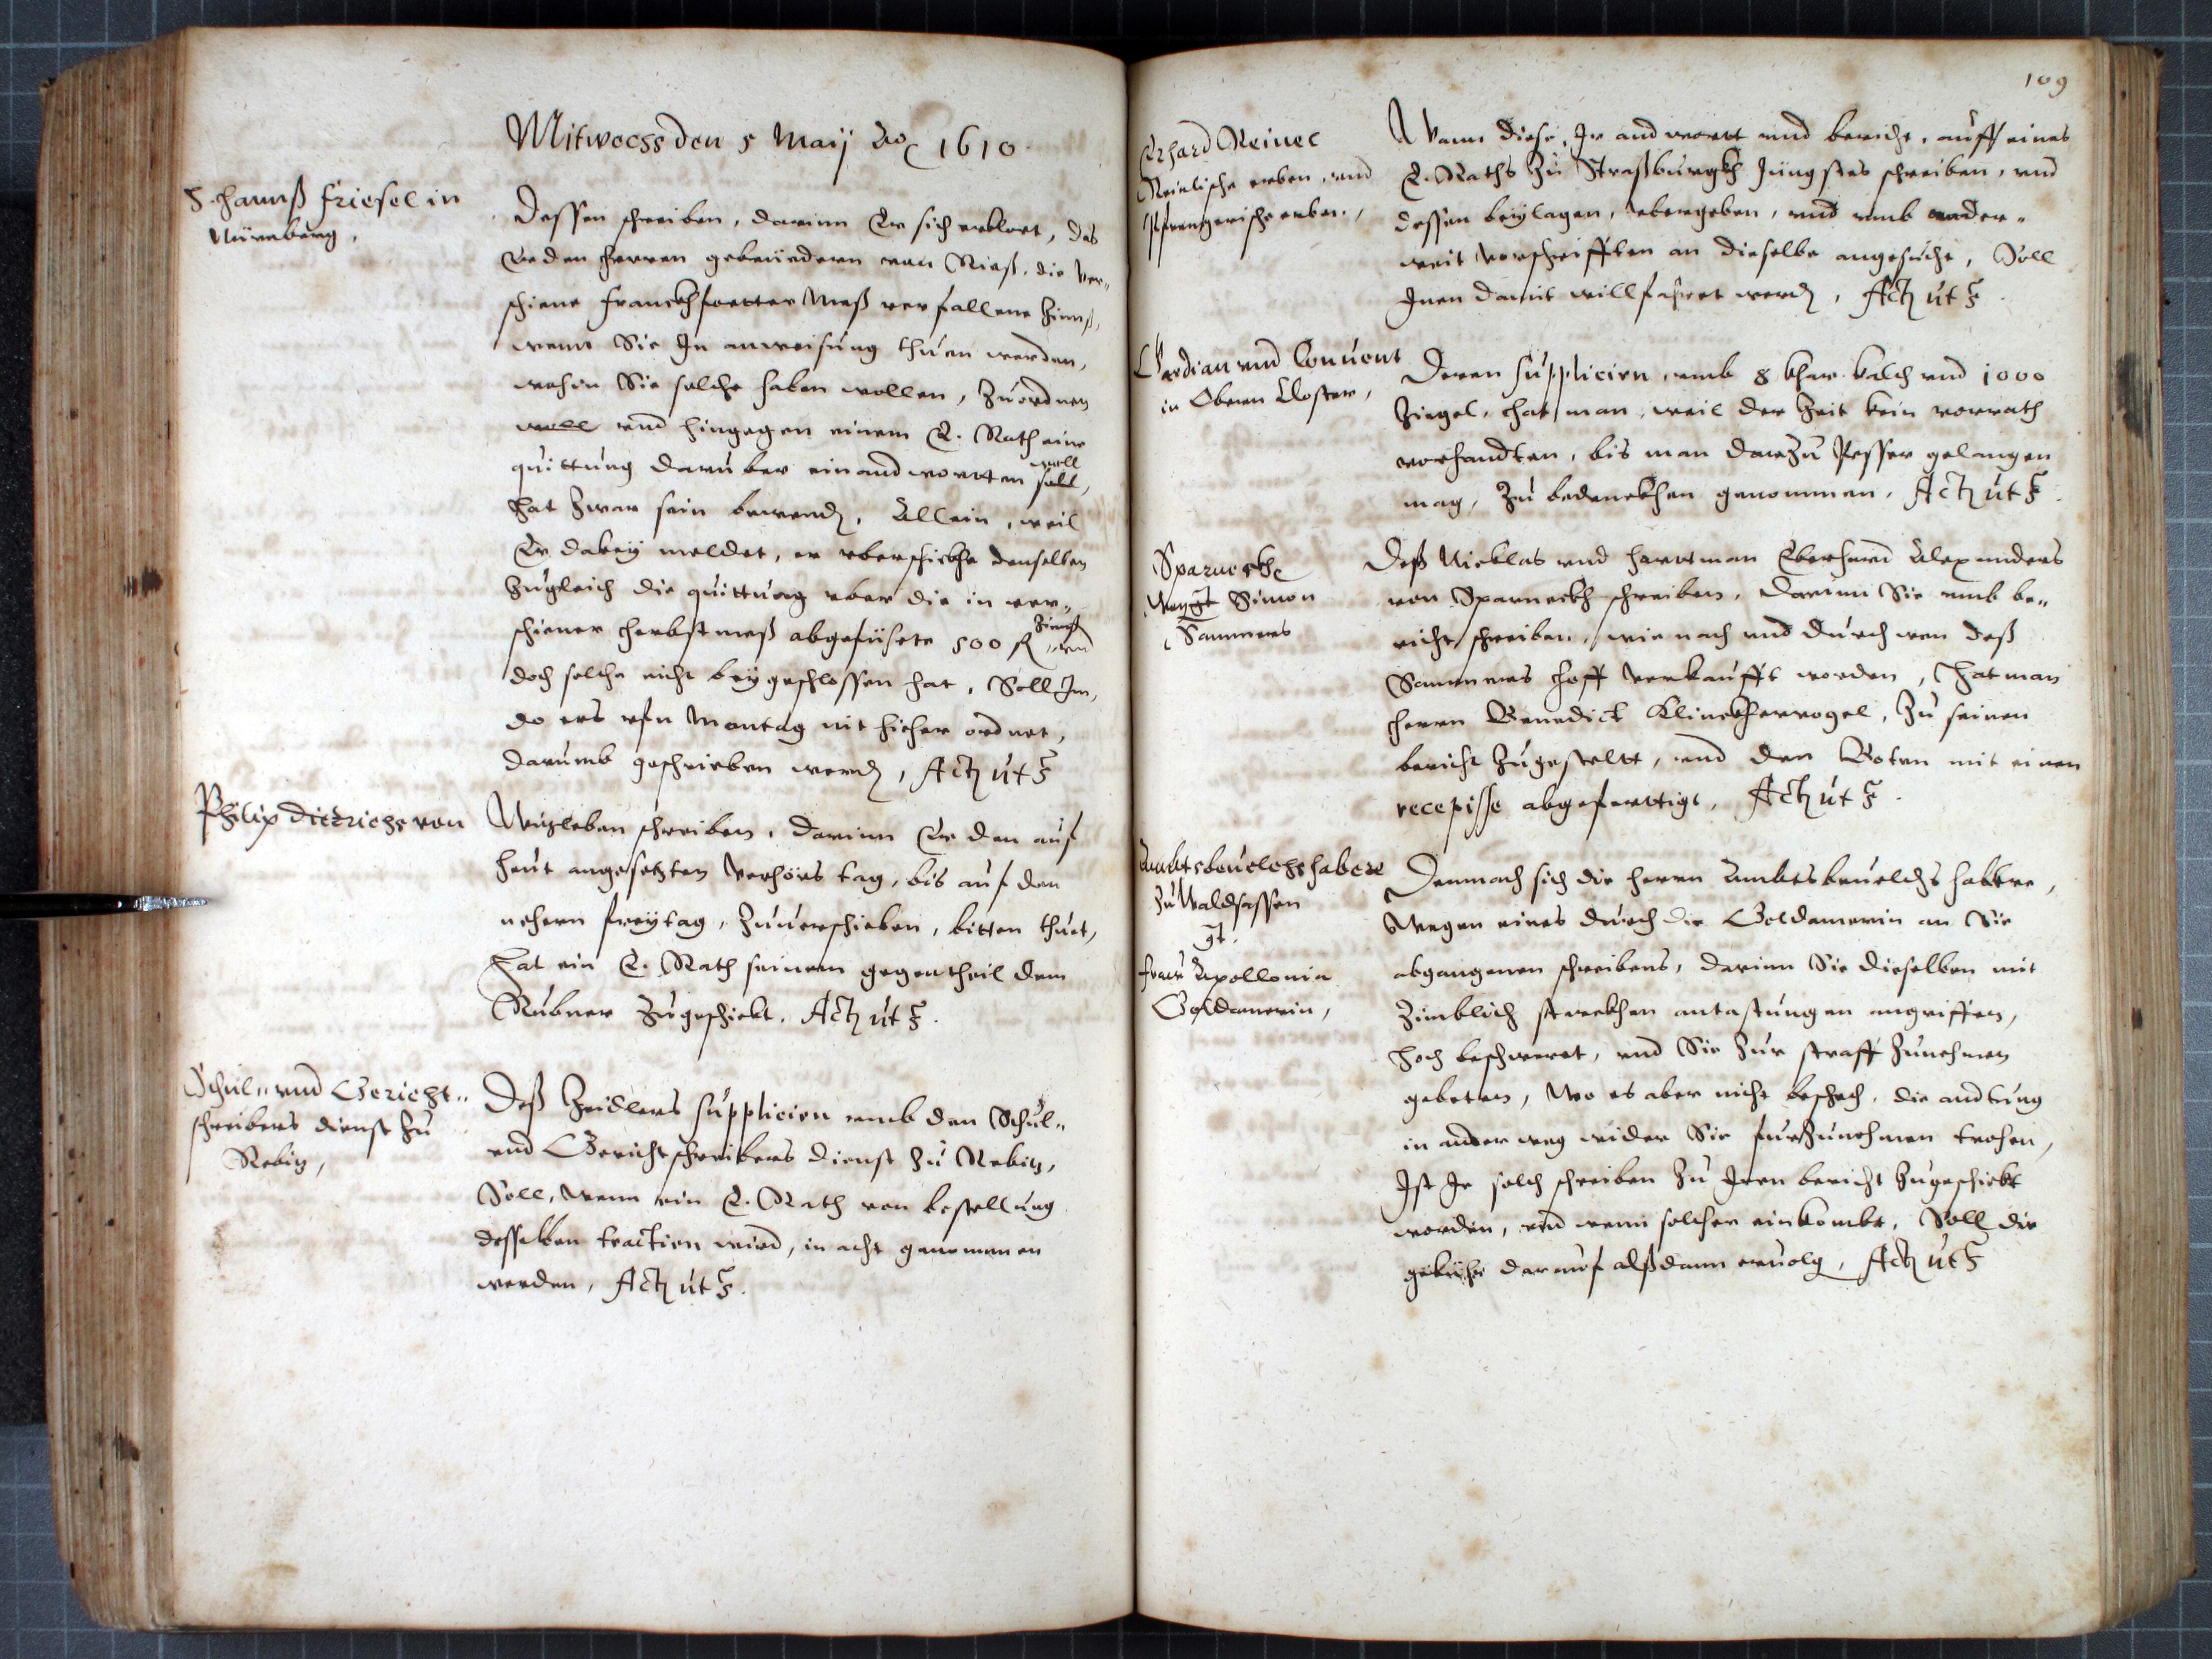 Mitwochs den 5 Maij Ao 1610
H. Hannß Friesel in
Nürnberg,
Dessen schreiben, darinn Er sich erklert, das
Er den Herren gebrüedern von Rieß, die ver„
schiene Franckhfortter Meß verfallene Zinnß,
wenn Sie Jn anweisung thuen werden,
wohin Sie solche haben wollen, Zuordnen
woll vnd hingegen einem E. Rath eine
quittung daruber einandworten soll,
woll
hat zwar sein bewend, Allein, weil
Er dabey meldet, er vberschickhe denselben
Zugleich die quittung vber die in ver„
schiener Herbstmeß abgefüste 500 fl Zinnß vnd
doch solche nicht beygeschlossen hat, Soll Jm,
do ers vfn Montag nit hieher ordnet,
darumb geschrieben werd, Act ut s
Philip Dietrichs von
Wuzleben schreiben, darinn Er den auf
heut angesetzten Verhörs tag, bis auf den
nehern freytag, Zuuerschieben, bitten thuet,
Hat ein E. Rath seinem gegentheil dem
Rubner Zugeschickt. Act ut s.
Schul„ und Gericht„
schreibers dienst Zu
Rebiz,
Deß Zeidlers supplicirn umb den Schul„
und Gerichtschreibers dienst Zu Rebiz,
Soll, wenn ein E. Rath von bestellung
desselben tractirn wird, in acht genommen
werden, Act ut s.
109
Erhard Reinec
Reinlische erben, und
erben,
Wann diese, Jr andwortt und bericht, auff eines
E. Raths Zu Straßburgkh Jüngstes schreiben, und
dessen beylagen, vbergeben, und umb ander„
weit vorschrifften an dieselbe angesucht, Soll
Jnen damit willfahret werd, Act ut s.
Gardian und Conuent
in Obern Closter,
Deren supplicirn, umb 8 khar kalch und 1000
Ziegel, hat man, weil der Zeit kein vorrath
vorhandten, bis man darzu Pesser gelangen
mag, Zu bedenckhen genommen, Act ut s.
Sparneckhe
Simon
Sammers
Deß Nicklas und Hartman Eberhard Alexanders
von Sparneckh schreiben, darinn Sie umb be„
richt schreiben, wie nach und durch wen deß
Sammers Hoff verkaufft worden, Hat man
Herrn Benedict Klinckhervogel, Zu seinem
bericht Zugestelt, und den Boten mit einem
recepisse abgeferttigt, Act ut s.
Ambtsbeuelchshabere
Zu Waldsassen
gt.
Frau Apollonia
Goldamerin,
Demnach sich die Herrn Ambtsbeuelchshabere,
Wegen eines durch die Goldamerin an Sie
abgangenen schreibens, darinn Sie dieselben mit
Zimblich starckhen antastungen angriffen,
Hoch beschweret, und Sie Zur straff Zunehmen
gebeten, Wo es aber nicht beschech, die andtung
in ander weg wider Sie furzunehmen trohen,
Jst Jr solch schreiben Zu Jrem bericht Zugeschickt
worden, und wenn solcher einkombt, Soll die
gebühr darauf alßdann ervolg, Act ut s